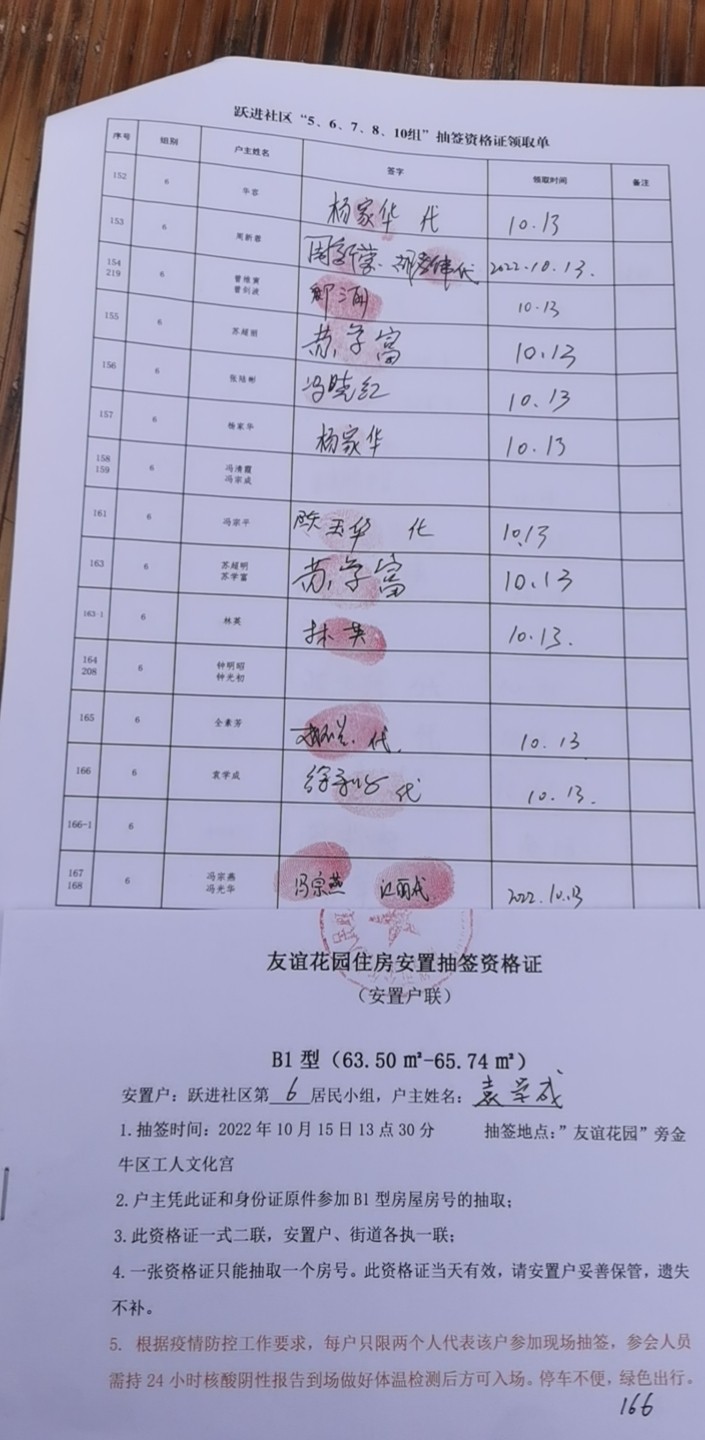 跃进社区“5、6、7、8、10组”抽签资格证领取单
序号 组别 户主姓名 签字 领取时间 备注
152 6 华容 杨家华 代 10.13
153 6 周新蓉 周新蓉 2022.10.13.
154 219 6 曾维寅 曾剑波 10.13
155 6 苏超明 苏学富 10.13
156 6 张陆彬 冯晓红 10.13
157 6 杨家华 杨家华 10.13
158 159 6 冯清霞 冯宗成
161 6 冯宗平 陈玉华 代 10.13
163 6 苏超明 苏学富 苏学富 10.13
163-1 6 林英 林英 10.13.
164 208 6 钟明昭 钟光初
165 6 全素芳 代. 10.13
166 6 袁学成 代 10.13.
166-1 6
167 168 6 冯宗燕 冯光华 冯宗燕 2022.10.13
友谊花园住房安置抽签资格证
（安置户联）
B1型（63.50㎡-65.74㎡）
安置户：跃进社区第 6 居民小组，户主姓名：袁学成
1.抽签时间：2022年10月15日13点30分 抽签地点：”友谊花园”旁金
牛区工人文化宫
2.户主凭此证和身份证原件参加B1型房屋房号的抽取；
3.此资格证一式二联，安置户、街道各执一联；
4.一张资格证只能抽取一个房号。此资格证当天有效，请安置户妥善保管，遗失
不补。
5. 根据疫情防控工作要求，每户只限两个人代表该户参加现场抽签，参会人员
需持24小时核酸阴性报告到场做好体温检测后方可入场。停车不便，绿色出行。
166